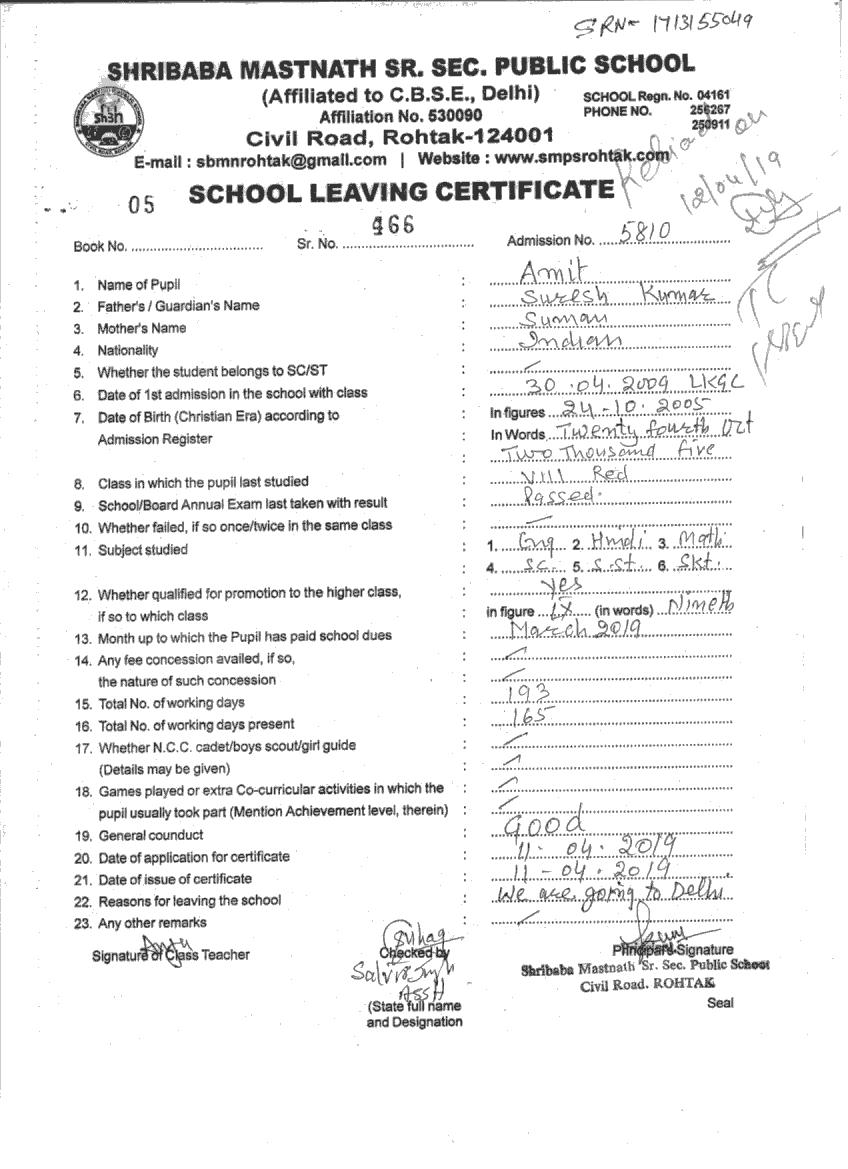 SRN- 1713155049
SHRIBABA MASTNATH SR. SEC. PUBLIC SCHOOL
(Affiliated to C.B.S.E., Delhi)
SCHOOL Regn. No. 04161
Affiliation No. 530090
PHONE NO. 256267
250911
Civil Road, Rohtak-124001
E-mail : sbmnrohtak@gmail.com | Website : www.smpsrohtak.com
on
12/04/19
SCHOOL LEAVING CERTIFICATE
Book No. 05 Sr. No. 466 Admission No. 5810
1. Name of Pupil : Amit
2. Father's / Guardian's Name : Suresh Kumar
3. Mother's Name : Suman
4. Nationality : Indian
5. Whether the student belongs to SC/ST :
6. Date of 1st admission in the school with class : 30.04.2009 LKGC
7. Date of Birth (Christian Era) according to : In figures 24-10.2005
Admission Register In Words Twenty fourth Oct
Two Thousand five
8. Class in which the pupil last studied : VIII Red
9. School/Board Annual Exam last taken with result : Passed.
10. Whether failed, if so once/twice in the same class :
11. Subject studied : 1. Eng 2. Hindi 3. Math
4. SC. 5. S.St. 6. Skt.
12. Whether qualified for promotion to the higher class, : Yes
if so to which class in figure IX (in words) Nineth
13. Month up to which the Pupil has paid school dues : March 2019
14. Any fee concession availed, if so, :
the nature of such concession :
15. Total No. of working days : 193
16. Total No. of working days present : 165
17. Whether N.C.C. cadet/boys scout/girl guide :
(Details may be given) :
18. Games played or extra Co-curricular activities in which the :
pupil usually took part (Mention Achievement level, therein) :
19. General counduct : Good
20. Date of application for certificate : 11-04.2019
21. Date of issue of certificate : 11-04.2019
22. Reasons for leaving the school : We are going to Delhi
23. Any other remarks :
Signature of Class Teacher
Suhag
Checked by
(State full name
and Designation
Principal's Signature
Shribaba Mastnath Sr. Sec. Public School
Civil Road. ROHTAK
Seal